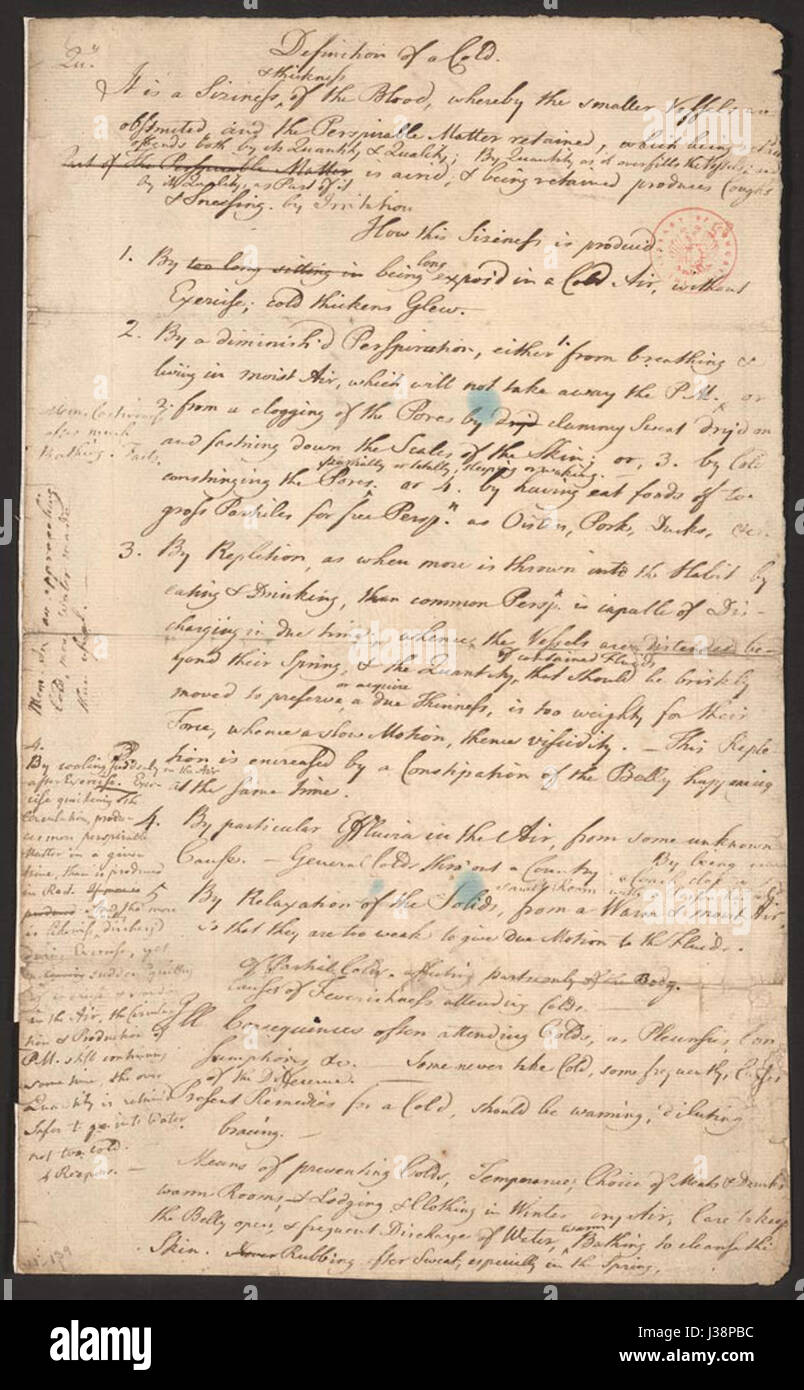 Qu.
Definition of a Cold.
& thickness
It is a Siziness, of the Blood, whereby the smaller Vessels are
obstructed, and the Perspirable Matter retained, which being retained
offends both by its Quantity & Quality; By Quantity as it overfills the Vessels, and
Part of the Perspirable Matter is acrid, & being retained produces Coughs
by its Quality, as Part of it
& Sneezing by Irritation
How this Siziness is produced
1. By too long sitting in being long expos'd in a Cold Air, without
Exercise; cold thickens Glew.
2. By a diminish'd Perspiration, either 1. from breathing &
living in moist Air, which will not take away the P.M. or
2. from a clogging of the Pores by clammy Sweat dry'd on
and fastning down the Scales of the Skin; or, 3. by Cold
partially or totally, sleeping or waking.
constringing the Pores. or 4. by having eat foods of too
gross Particles for free Persp.n as Oisters, Pork, Ducks, &c.
3. By Repletion, as when more is thrown into the Habit by
eating & Drinking, than common Persp.n is capable of Dis-
charging in due time; whence the Vessels are distended be-
yond their Spring, & the Quantity of contained Fluids that should be briskly
moved to preserve or acquire a due Thinness, is too weighty for their
Force, whence a slow Motion, thence viscidity. — This Reple-
tion is encreased by a Constipation of the Belly happening
at the same time.
4. By particular Effluvia in the Air, from some unknown
Cause. — General Colds thro' out a Country. By being
5 By Relaxation of the Solids, from a Warm & moist Air,
is that they are too weak to give Due Motion to the Fluids.
Of Partial Colds affecting parts only of the Body.
Causes of Feverishness attending Colds. —
Ill Consequences often attending Colds, as Pleurisies, Con
sumptions &c. — Some never take Cold, some frequently, Causes
of the Difference.
Present Remedies for a Cold, should be warming, diluting
bracing. —
Means of preventing Colds, Temperance, Choice of Meats & Drinks
warm Rooms, & Lodging & Clothing in Winter dry Air, Care to keep
the Belly open, & frequent Discharges of Water, warm Bathing to cleanse the
Skin. Rubbing after Sweat, especially in the Spring.
Mem. Costiveness
after much
Bathing. Facts.
Mem. on an approaching
Cold, more Water made
than usual. —
4.
By cooling suddenly in the Air
after Exercise. Exer-
cise quickening the
Circulation, produ-
ces more perspirable
Matter in a given
time, than is produced
in Rest. And tho' more
is likewise usually discharged
during Exercise, yet
on sudden quitting
of exercise & standing
in the Air, the Circula-
tion & Production of
P.M. still continuing
some time, the over
Quantity is retain'd
Safer to go into Water
not too cold.
& Reasons. —
alamy
a
alamy stock photo
J38PBC